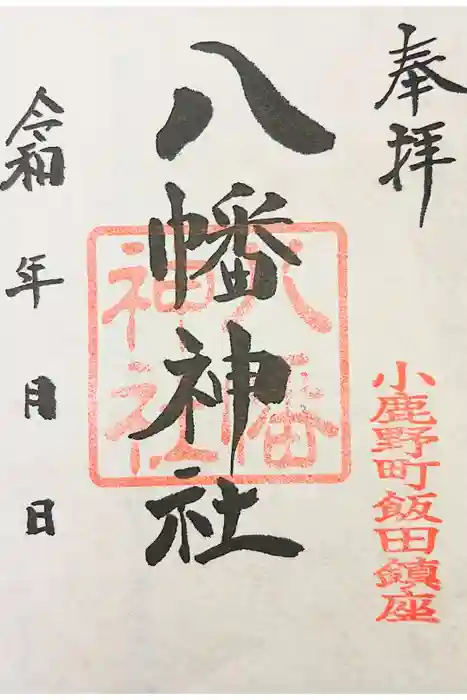 奉拝
小鹿野町飯田鎮座
八幡神社
八幡
神社
令和 年 月 日